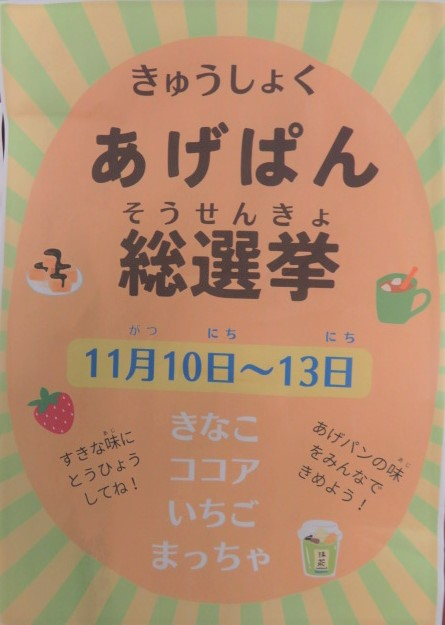 きゅうしょく
あげぱん
そうせんきょ
総選挙
がつ にち にち
11月10日～13日
きなこ
ココア
いちご
まっちゃ
あじ
すきな味に
とうひょう
してね！
あじ
あげパンの味
をみんなで
きめよう！
抹茶